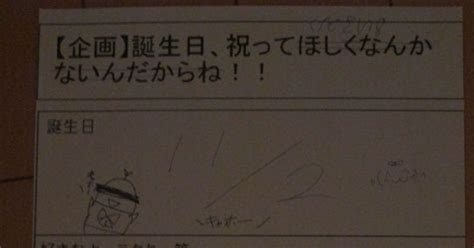 【企画】誕生日、祝ってほしくなんか
ないんだからね！！
誕生日
11/2
＼キャホー／